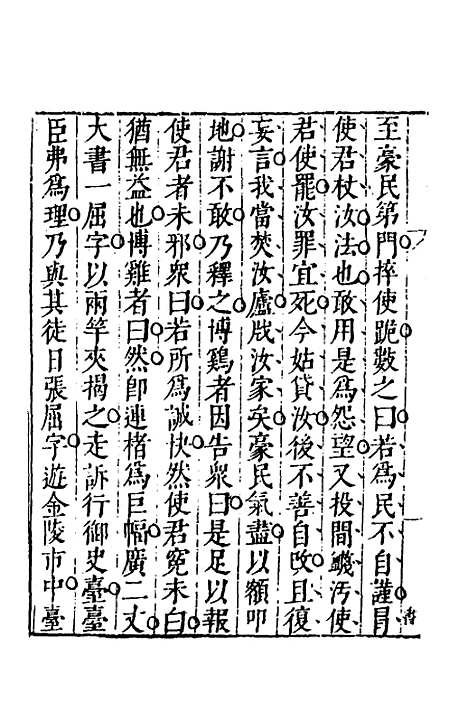 至豪民第門捽使跪數之曰若爲民不自謹冒
使君杖汝法也敢用是爲怨望又投間衊汚使
君使罷汝罪宜死今姑貸汝後不善自改且復
妄言我當焚汝廬戕汝家矣豪民氣盡以額叩
地謝不敢乃釋之博鷄者因告衆曰是足以報
使君者未邪衆曰若所爲誠快然使君寃未白
猶無益也博雞者曰然卽連楮爲巨幅廣二丈
大書一屈字以兩竿夾揭之走訴行御史臺臺
臣弗爲理乃與其徒日張屈字遊金陵市中臺